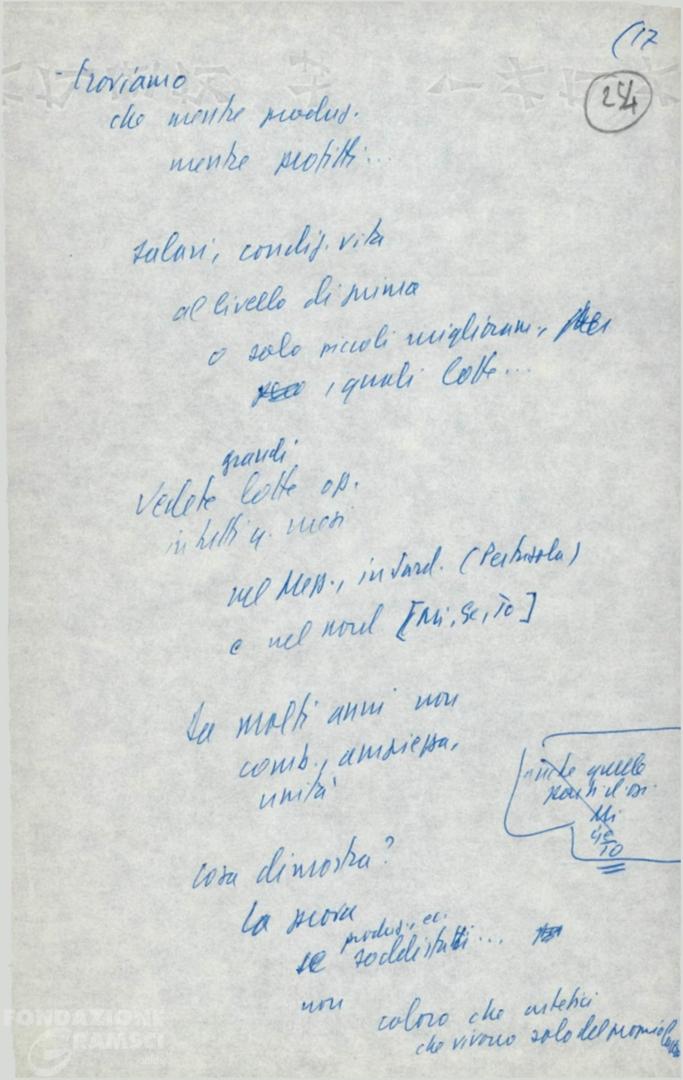 (17
254
- troviamo
che mentre produz.
mentre profitti...
salari, condiz. vita
al livello di prima
o solo piccoli miglioram.,
, quali lotte...
grandi
Vedete lotte op.
in tutti q. mesi
nel Mezz., in Sard. (Pertusola)
e nel nord [Mi, Ge, To]
Da molti anni non
comb., ampiezza,
unità
anche quelle
Mi
Ge
TO
Cosa dimostra?
la prova
produz., ec.
se soddisfatti...
non
coloro che artefici
che vivono solo del proprio
FONDAZIONE
GRAMSCI